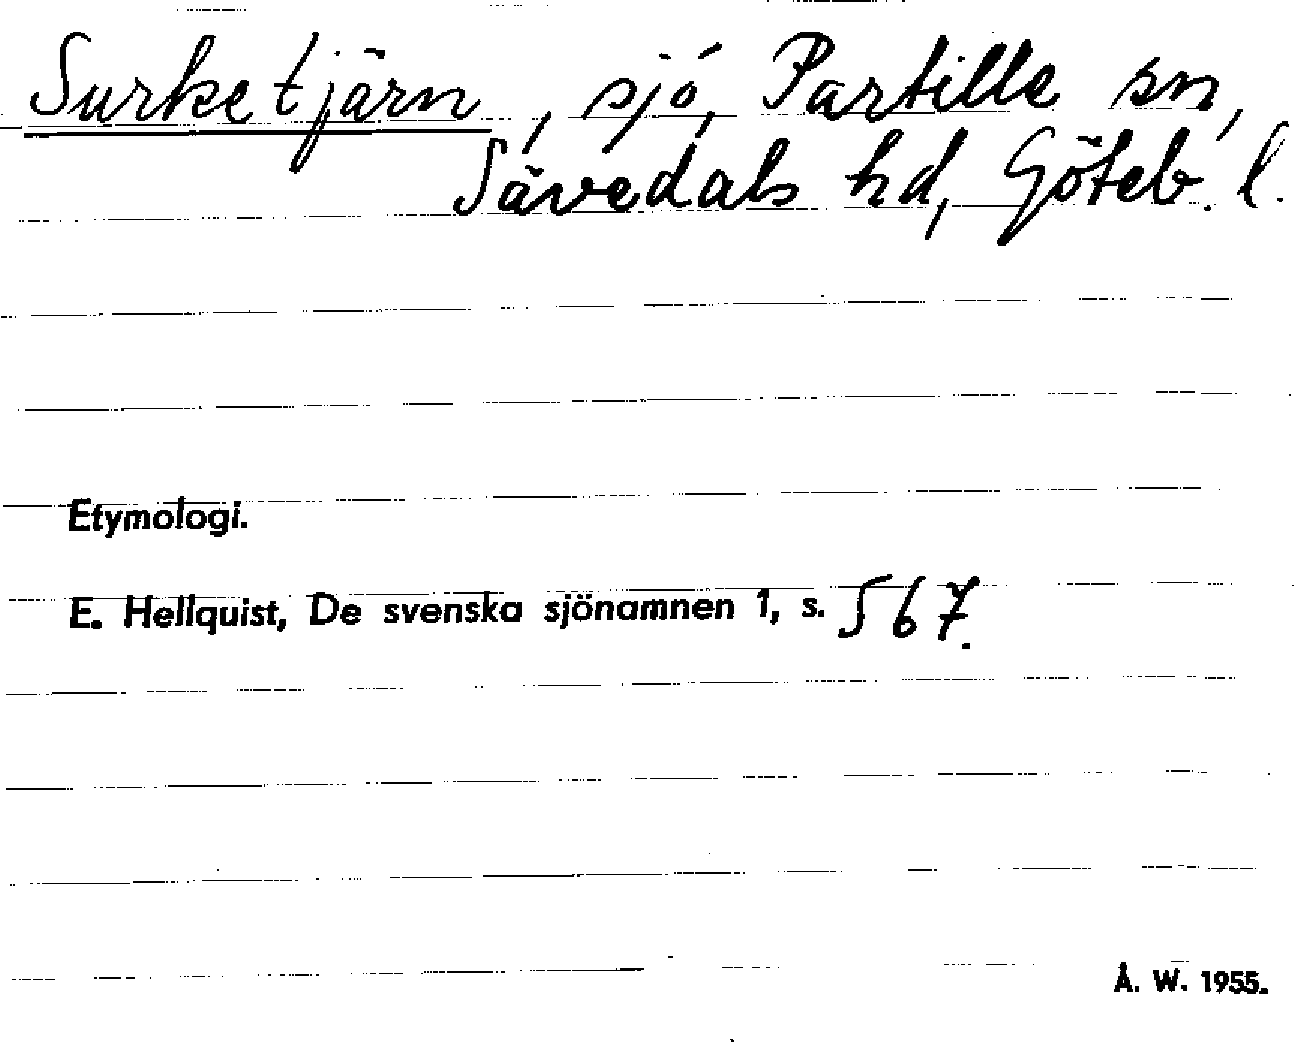 Surketjärn, sjö, Partille sn,
Sävedals hd, Göteb. l.
Etymologi.
E. Hellquist, De svenska sjönamnen 1, s. 567.
Å. W. 1955.